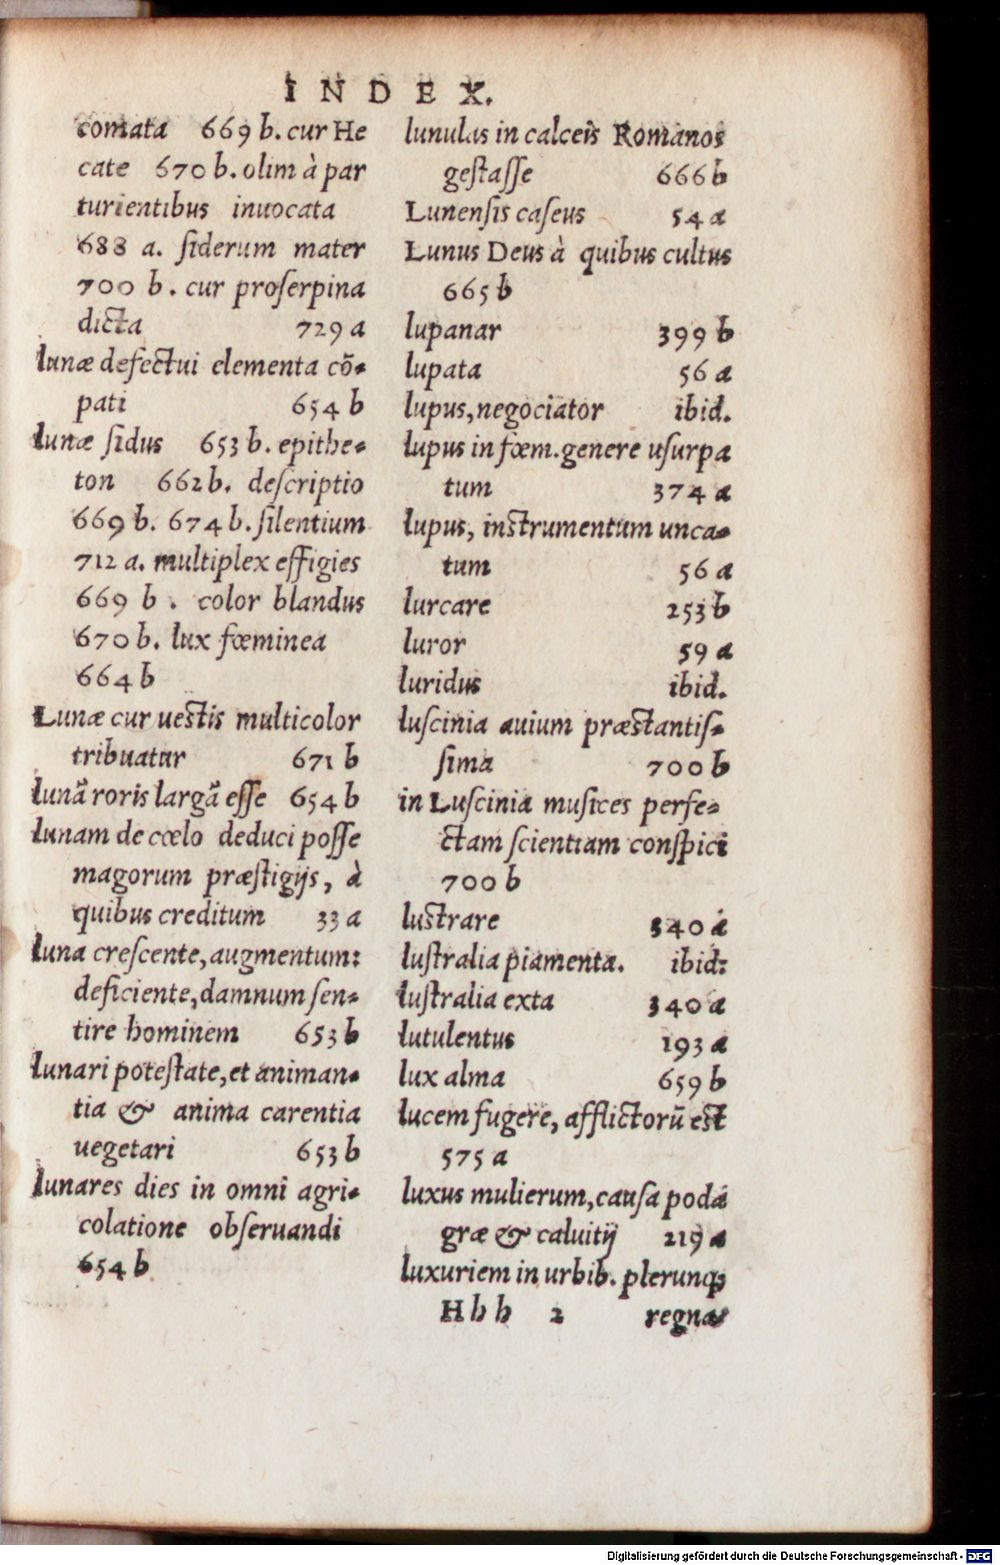 INDEX.
comata 669 b. cur He
cate 670 b. olim à par
turientibus inuocata
688 a. ſiderum mater
700 b. cur proſerpina
dicta 729 a
lunæ defectui elementa cō-
pati 654 b
lunæ ſidus 653 b. epithe-
ton 662 b. deſcriptio
669 b. 674 b. ſilentium
712 a. multiplex effigies
669 b. color blandus
670 b. lux fœminea
664 b
Lunæ cur ueſtis multicolor
tribuatur 671 b
lunã roris largã eſſe 654 b
lunam de cœlo deduci poſſe
magorum præſtigijs, à
quibus creditum 33 a
luna creſcente, augmentum:
deficiente, damnum ſen-
tire hominem 653 b
lunari poteſtate, et animan-
tia & anima carentia
uegetari 653 b
lunares dies in omni agri-
colatione obſeruandi
654 b
lunulas in calceis Romanos
geſtaſſe 666 b
Lunenſis caſeus 54 a
Lunus Deus à quibus cultus
665 b
lupanar 399 b
lupata 56 a
lupus, negociator ibid.
lupus in fœm. genere uſurpa
tum 374 a
lupus, inſtrumentum unca-
tum 56 a
lurcare 253 b
luror 59 a
luridus ibid.
luſcinia auium præſtantiſ-
ſima 700 b
in Luſcinia muſices perfe-
ctam ſcientiam conſpici
700 b
luſtrare 340 a
luſtralia piamenta. ibid:
luſtralia exta 340 a
lutulentus 193 a
lux alma 659 b
lucem fugere, afflictorũ eſt
575 a
luxus mulierum, cauſa poda
græ & caluitij 219 a
luxuriem in urbib. plerunq;
Hbb 2 regna-
Digitalisierung gefördert durch die Deutsche Forschungsgemeinschaft - DFG